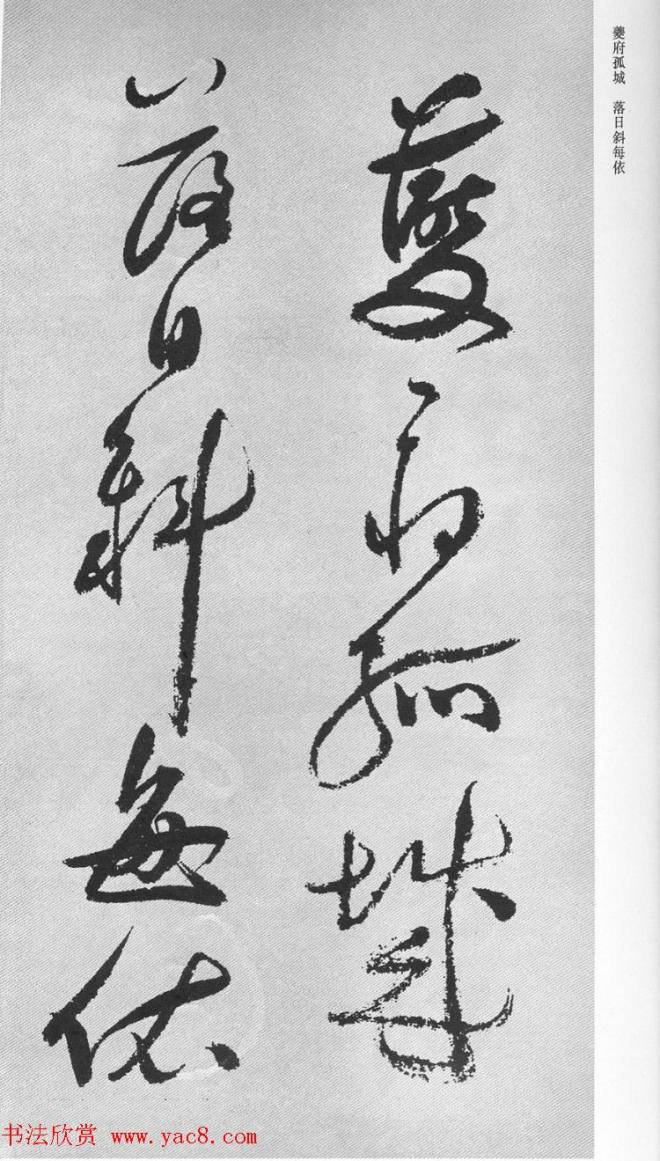 夔府孤城 落日斜每依
夔府孤城
落日斜每依
书法欣赏 www.yac8.com